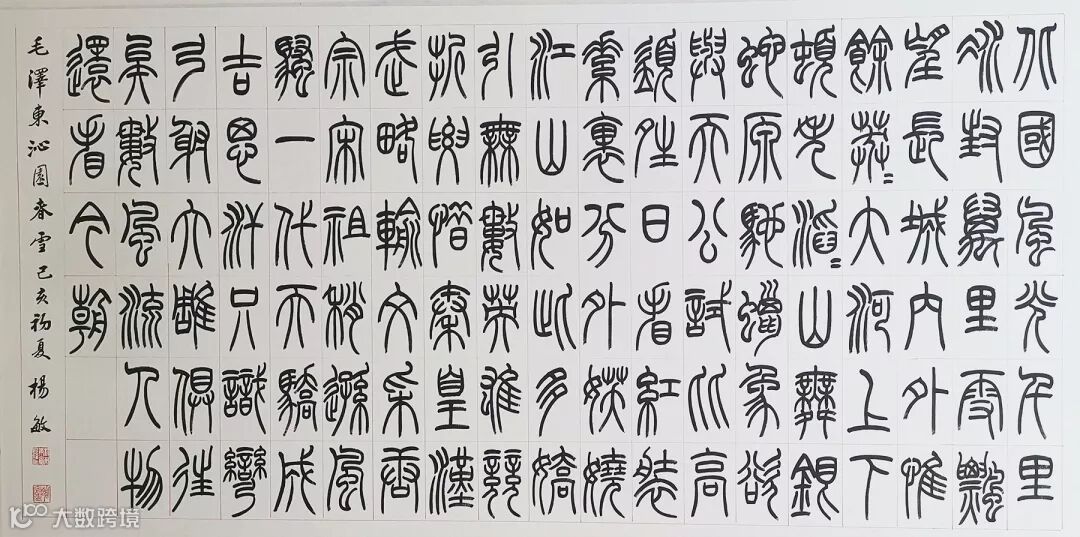 北國風光千里
冰封萬里雪飄
望長城內外惟
餘莽〻大河上下
頓失滔〻山舞銀
蛇原馳蠟象欲
與天公試比高
須晴日看紅裝
素裹分外妖嬈
江山如此多嬌
引無數英雄競
折腰惜秦皇漢
武略輸文采唐
宗宋祖稍遜風
騷一代天驕成
吉思汗只識彎
弓射大雕俱往
矣數風流人物
還看今朝
毛澤東沁園春雪己亥初夏楊敏
大数跨境